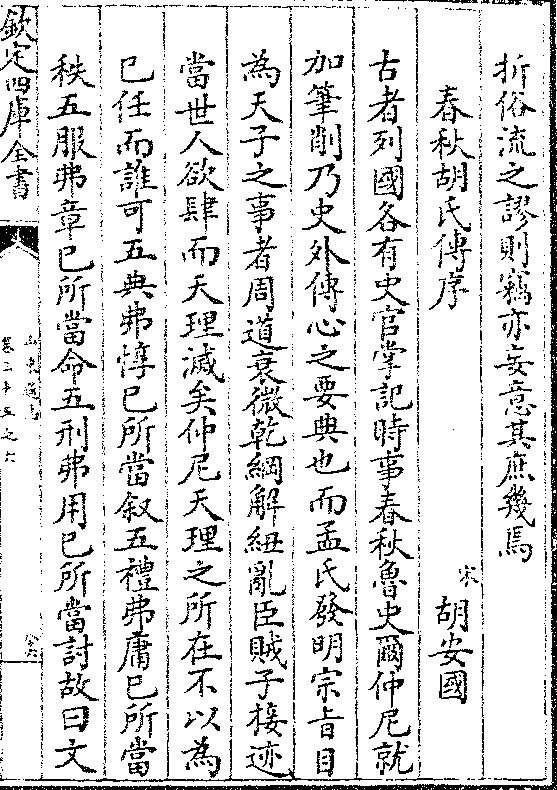 折俗流之謬則竊亦妄意其庶幾焉
春秋胡氏傳序
宋 胡安國
古者列國各有史官掌記時事春秋魯史爾仲尼就
加筆削乃史外傳心之要典也而孟氏發明宗旨目
為天子之事者周道衰微乾綱解紐亂臣賊子接迹
當世人欲肆而天理滅矣仲尼天理之所在不以為
已任而誰可五典弗惇已所當叙五禮弗庸已所當
秩五服弗章已所當命五刑弗用已所當討故曰文
欽定四庫全書
卷三十五之六